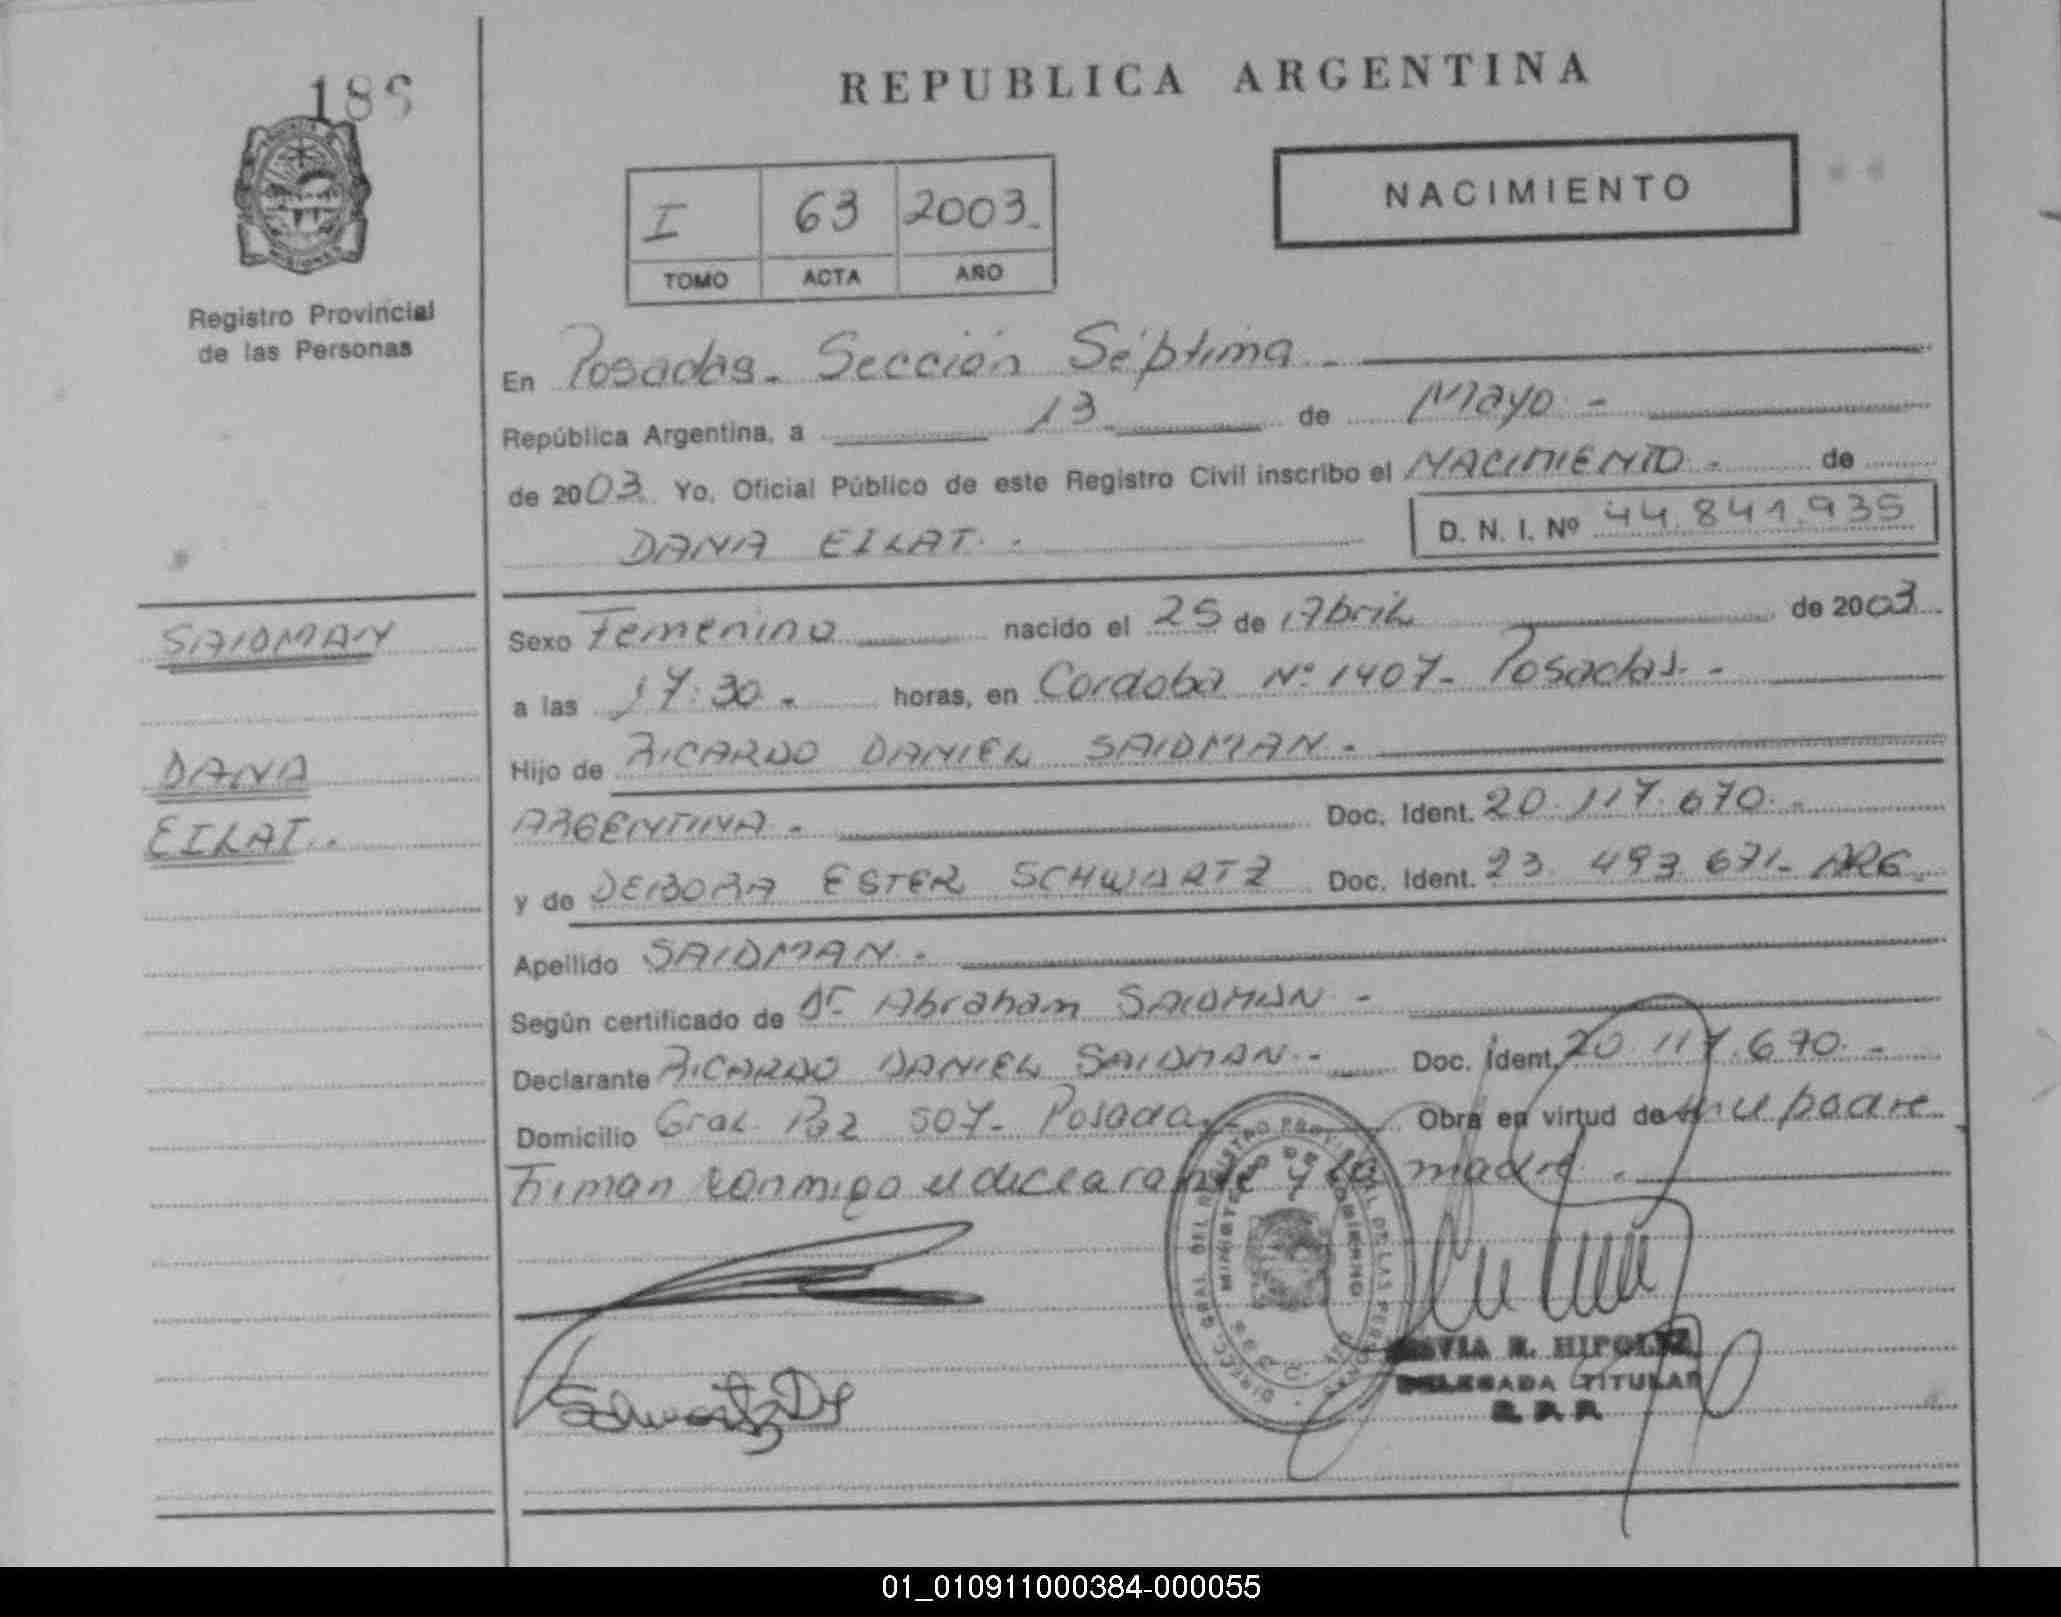 REPUBLICA ARGENTINA
186
NACIMIENTO
I 63 2003.
TOMO ACTA AÑO
Registro Provincial
de las Personas
En Posadas. Sección Séptima.
República Argentina, a 13 de Mayo -
de 2003. Yo, Oficial Público de este Registro Civil inscribo el NACIMIENTO. de
DANA EILAT. D. N. I. Nº 44.841.935
SAIDMAN
DANA
EILAT.
Sexo Femenino nacido el 25 de Abril de 2003
a las 17:30. horas, en Cordoba Nº 1407- Posadas. -
Hijo de RICARDO DANIEL SAIDMAN.
ARGENTINA. Doc. Ident. 20.117.670. -
y de DEBORA ESTER SCHWARTZ Doc. Ident. 23.493.671- ARG.
Apellido SAIDMAN.
Según certificado de Dr Abraham SAIDMAN -
Declarante RICARDO DANIEL SAIDMAN. - Doc. Ident. 20 117.670. -
Domicilio Gral. Paz 507- Posadas Obra en virtud de su padre
Firman conmigo el declarante y la madre.
DIRECC. GRAL. DEL REGISTRO PROVINCIAL DE LAS PERSONAS
MINISTERIO DE GOBIERNO
Schwartz
HIPOLITA
DELEGADA TITULAR
R. P. P.
01_010911000384-000055